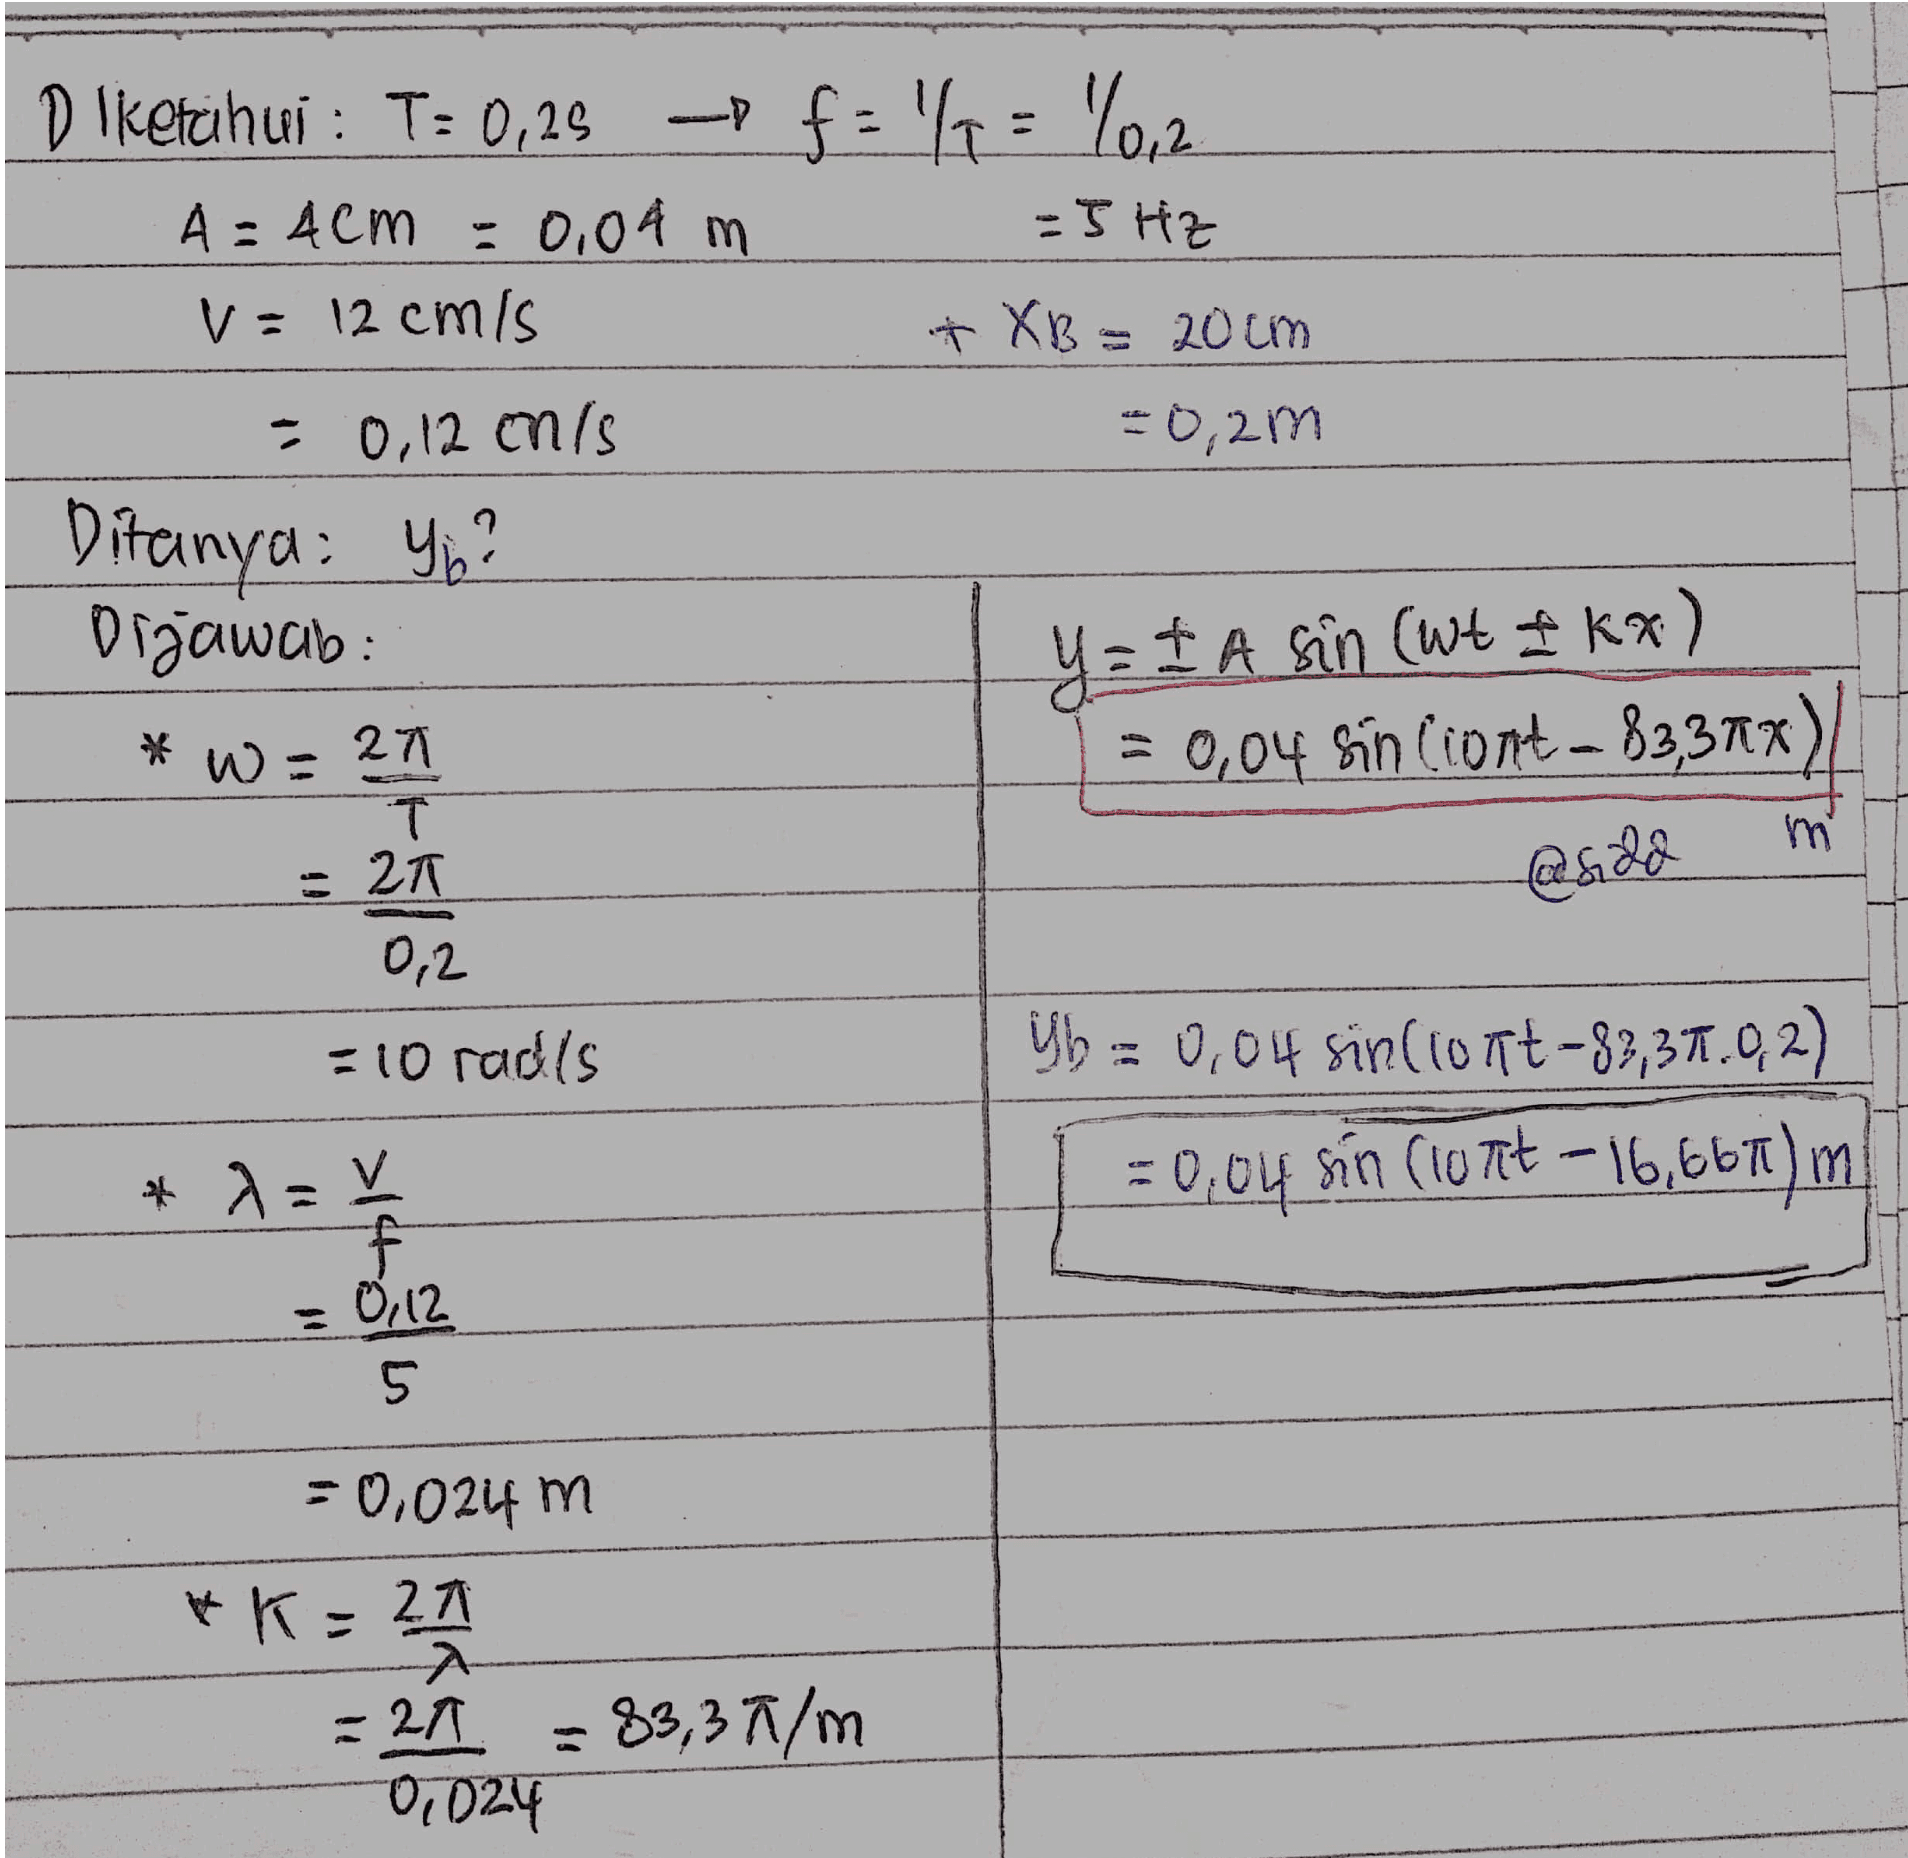 Diketahui: T= 0,2s → f = 1/T = 1/0,2
A = 4cm = 0,04 m = 5 Hz
V = 12 cm/s + XB = 20 cm
= 0,12 cm/s = 0,2m
Ditanya: yb?
Dijawab:
* ω = 2π/T
= 2π/0,2
= 10 rad/s
* λ = v/f
= 0,12/5
= 0,024 m
* K = 2π/λ
= 2π/0,024 = 83,3 π/m
y = ± A sin (ωt ± kx)
= 0,04 sin (10πt – 83,3πx)
m
yb = 0,04 sin(10πt – 83,3π.0,2)
= 0,04 sin (10πt – 16,66π) m